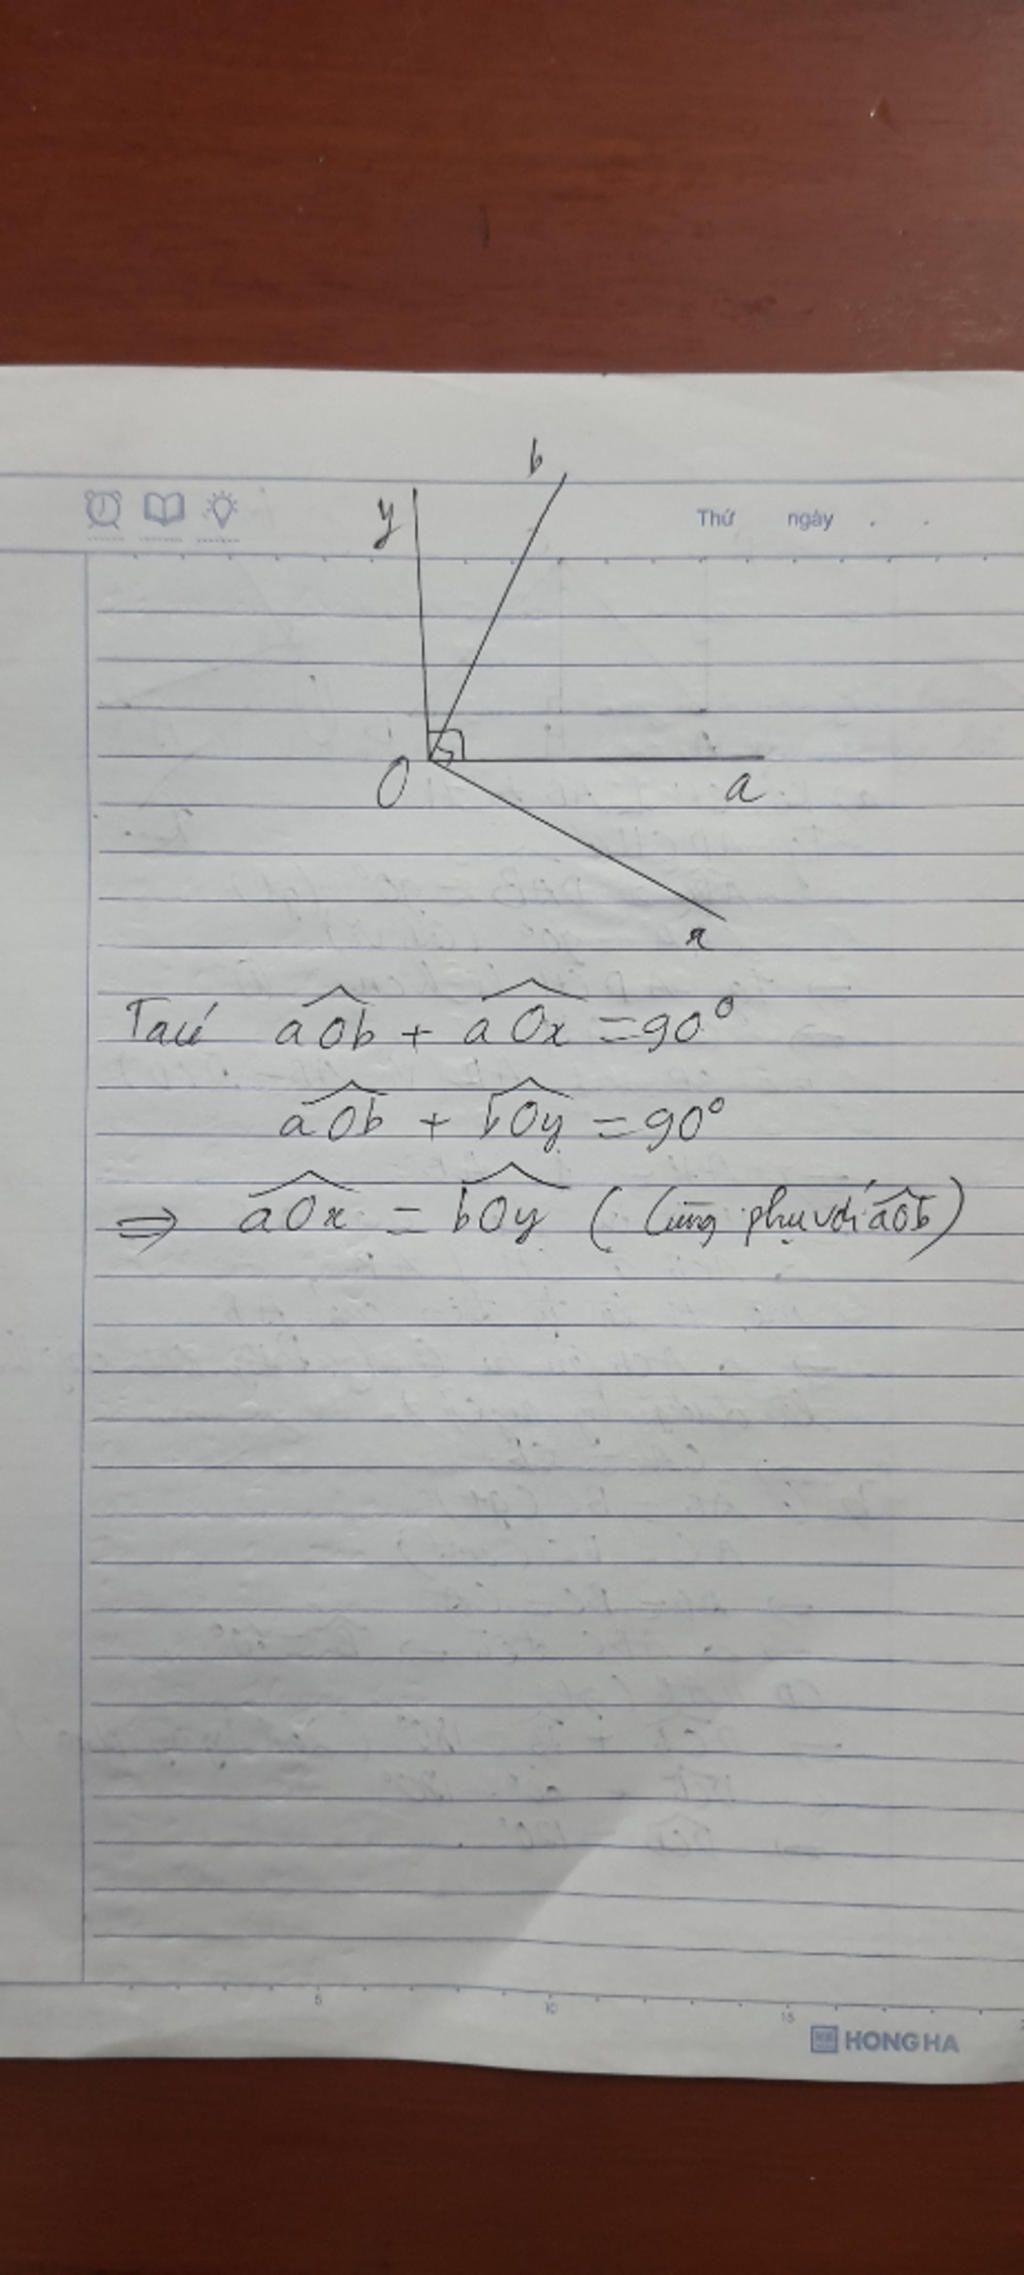 b
y
Thứ ngày
O
a
x
Ta có aOb + aOx = 90°
aOb + bOy = 90°
⇒ aOx = bOy ( Cùng phụ với aOb)
5 10 15
HONG HA